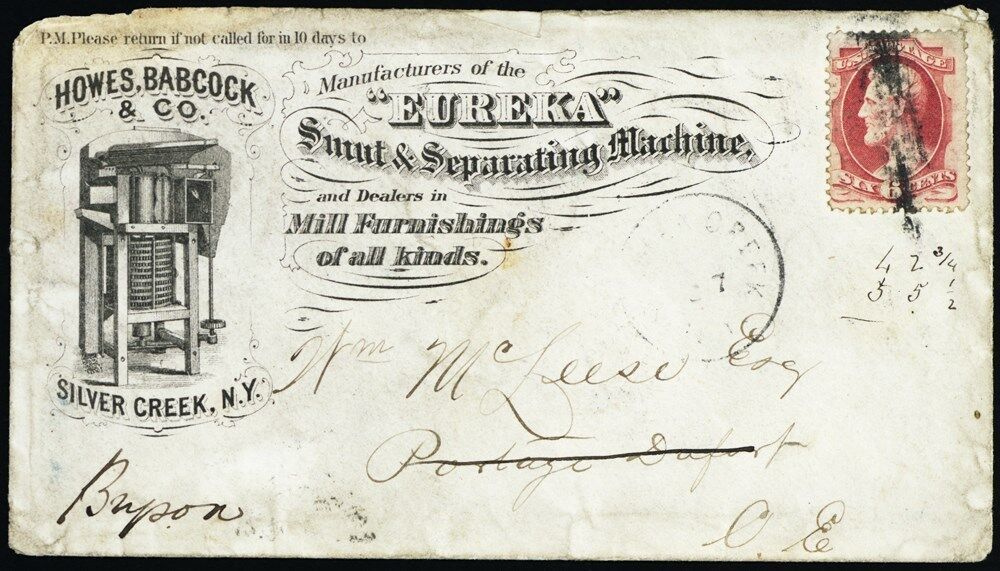 P.M. Please return if not called for in 10 days to
HOWES, BABCOCK
& CO.
SILVER CREEK, N.Y.
Manufacturers of the
"EUREKA"
Smut & Separating Machine,
and Dealers in
Mill Furnishings
of all kinds.
U.S. POSTAGE
SIX 6 CENTS
CREEK
7
4 2 3/4
5 5 1/2
Wm McLeese Esq
Portage Du Fort
C. E
Bryson